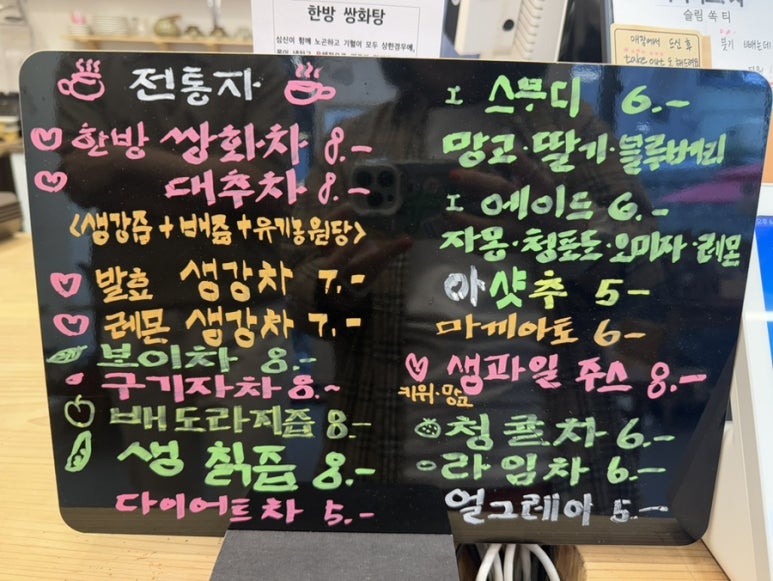 한방 쌍화탕
심신이 함께 노곤하고 기혈이 모두 상한경우에,
슬림 쑥 티
매장에서 드신 후
take out 도 해드려요
전통차
한방 쌍화차 8.-
대추차 8.-
<생강즙 + 배즙 + 유기농원당>
발효 생강차 7.-
레몬 생강차 7.-
보이차 8.-
구기자차 8.~
배도라지즙 8.-
생 칡즙 8.-
다이어트차 5.-
I 스무디 6.-
망고·딸기·블루베리
I 에이드 6.-
자몽·청포도·오미자·레몬
아샷추 5-
마끼아토 6-
생과일 주스 8.-
키위·망고
청귤차 6.-
라임차 6.-
얼그레이 5.-